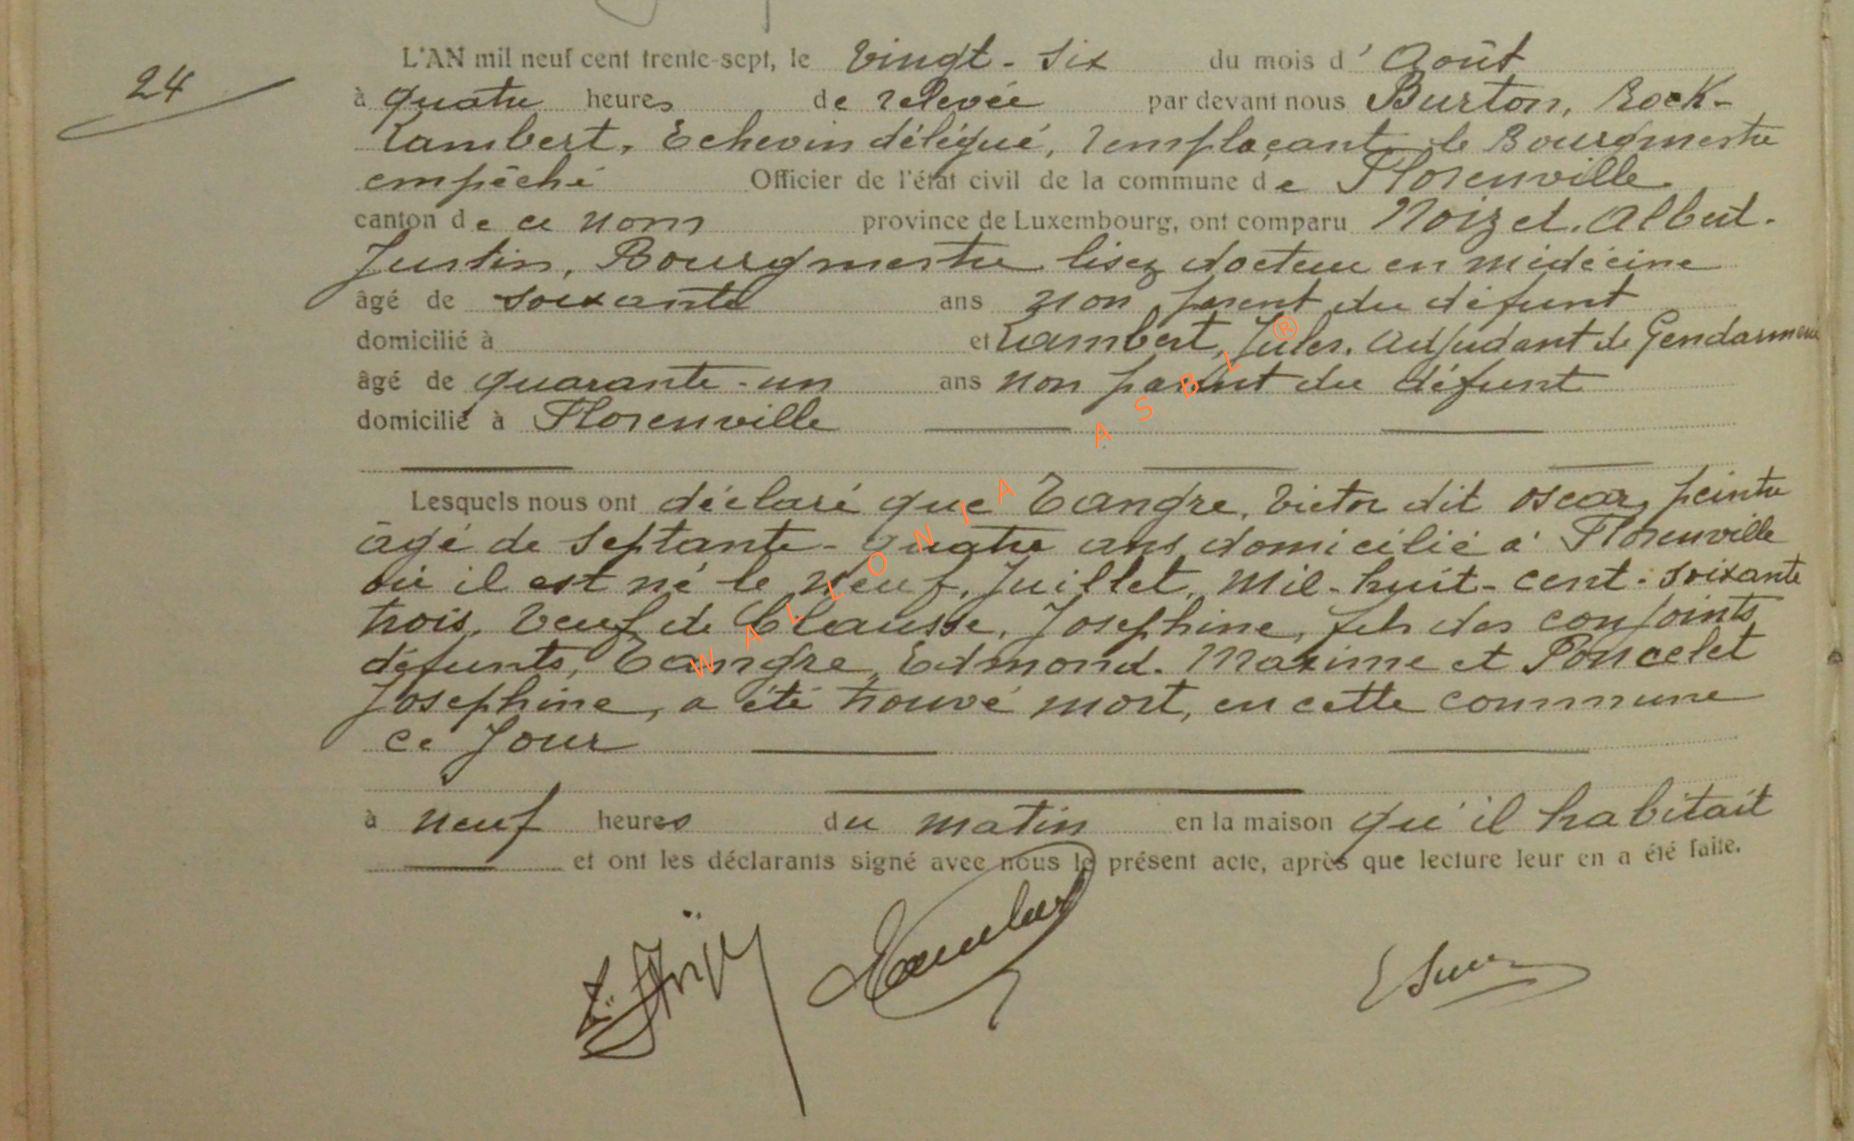 24
L'AN mil neuf cent trente-sept, le Vingt-Six du mois d'Août
à quatre heures de relevée par devant nous Burton, Rock-
Lambert, Echevin délégué, remplaçant le Bourgmestre
empêché Officier de l'état civil de la commune de Florenville
canton de ce nom province de Luxembourg, ont comparu Noizet, Albert-
Justin, Bourgmestre lisez docteur en médecine
âgé de soixante ans non parent du défunt
domicilié à et Lambert, Jules, adjudant de Gendarmerie
âgé de quarante-un ans non parent du défunt
domicilié à Florenville
Lesquels nous ont déclaré que Tangre, Victor dit Oscar, peintre
âgé de septante-quatre ans domicilié à Florenville
où il est né le neuf, Juillet, mil-huit-cent-soixante
trois, veuf de Clausse, Josephine, fils des conjoints
défunts, Tangre, Edmond-Maxime et Poncelet
Josephine, a été trouvé mort, en cette commune
ce jour
à neuf heures du matin en la maison qu'il habitait
et ont les déclarants signé avec nous le présent acte, après que lecture leur en a été faite.
Lambert
WALLONIA ASBL ®